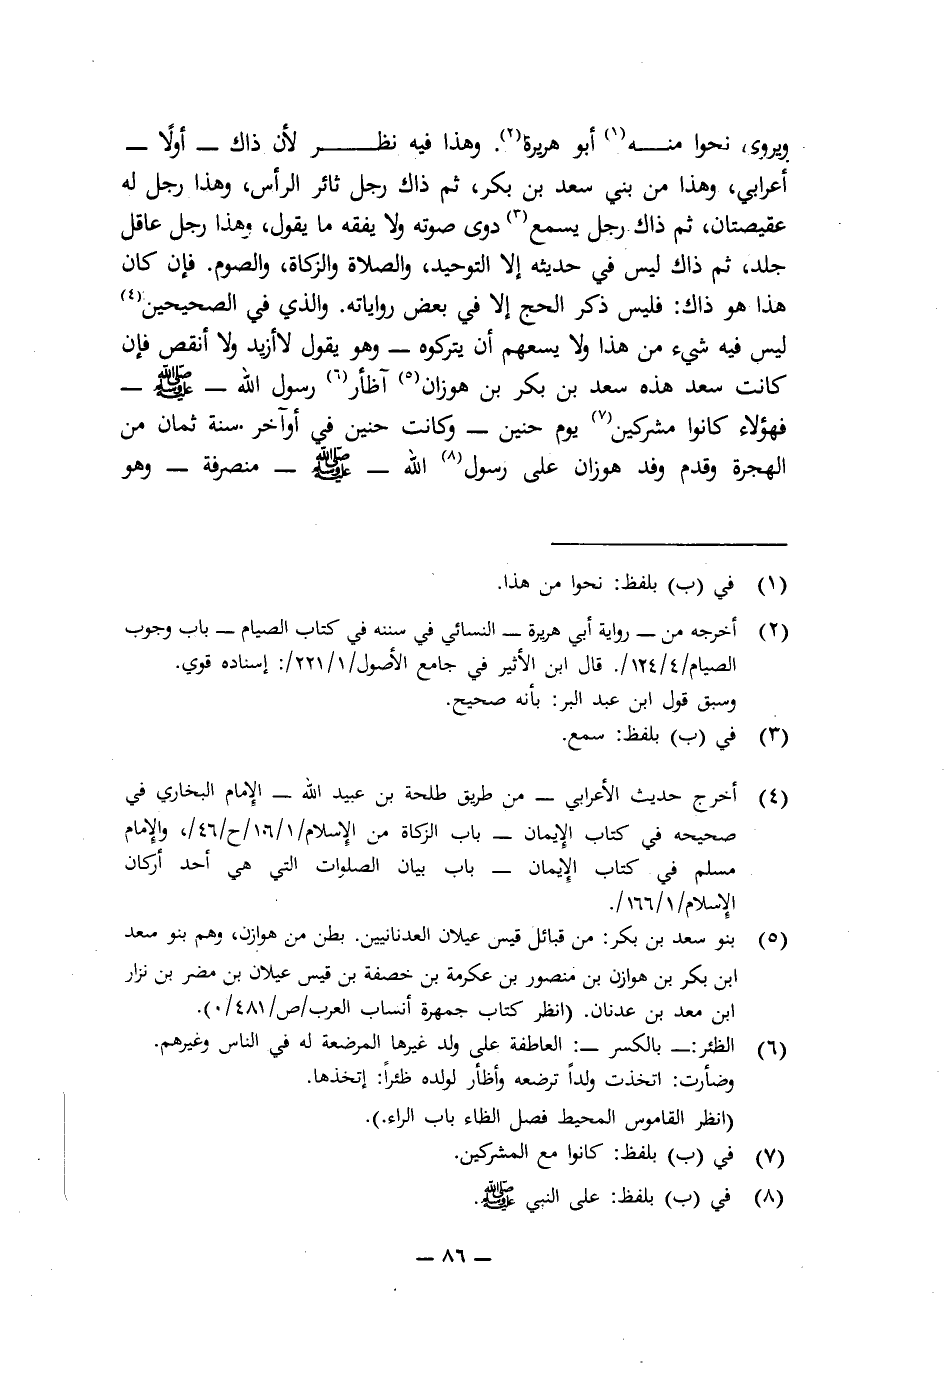 ويروى، نحوا منـــه(١) أبو هريرة(٢). وهذا فيه نظـــــر لأن ذاك ــ أولًا ــ
أعرابي، وهذا من بني سعد بن بكر، ثم ذاك رجل ثائر الرأس، وهذا رجل له
عقيصتان، ثم ذاك رجل يسمع(٣) دوى صوته ولا يفقه ما يقول، وهذا رجل عاقل
جلد، ثم ذاك ليس في حديثه إلا التوحيد، والصلاة والزكاة، والصوم. فإن كان
هذا هو ذاك: فليس ذكر الحج إلا في بعض رواياته. والذي في الصحيحين(٤)
ليس فيه شيء من هذا ولا يسعهم أن يتركوه ــ وهو يقول لاأزيد ولا أنقص فإن
كانت سعد هذه سعد بن بكر بن هوزان(٥) آظأر(٦) رسول الله ــ ﷺ ــ
فهؤلاء كانوا مشركين(٧) يوم حنين ــ وكانت حنين في أوآخر سنة ثمان من
الهجرة وقدم وفد هوزان على رسول(٨) الله ــ ﷺ ــ منصرفة ــ وهو
(١) في (ب) بلفظ: نحوا من هذا.
(٢) أخرجه من ــ رواية أبي هريرة ــ النسائي في سننه في كتاب الصيام ــ باب وجوب
الصيام/٤/١٢٤/. قال ابن الأثير في جامع الأصول/١/٢٢١/: إسناده قوي.
وسبق قول ابن عبد البر: بأنه صحيح.
(٣) في (ب) بلفظ: سمع.
(٤) أخرج حديث الأعرابي ــ من طريق طلحة بن عبيد الله ــ الإمام البخاري في
صحيحه في كتاب الإيمان ــ باب الزكاة من الإسلام/١/١٠٦/ح/٤٦/، والإمام
مسلم في كتاب الإيمان ــ باب بيان الصلوات التي هي أحد أركان
الإسلام/١/١٦٦/.
(٥) بنو سعد بن بكر: من قبائل قيس عيلان العدنانيين. بطن من هوازن، وهم بنو سعد
ابن بكر بن هوازن بن منصور بن عكرمة بن خصفة بن قيس عيلان بن مضر بن نزار
ابن معد بن عدنان. (انظر كتاب جمهرة أنساب العرب/ص/٤٨١/٠).
(٦) الظئر:ــ بالكسر ــ: العاطفة على ولد غيرها المرضعة له في الناس وغيرهم.
وضأرت: اتخذت ولداً ترضعه وأظأر لولده ظئراً: إتخذها.
(انظر القاموس المحيط فصل الظاء باب الراء.).
(٧) في (ب) بلفظ: كانوا مع المشركين.
(٨) في (ب) بلفظ: على النبي ﷺ.
ــ ٨٦ ــ